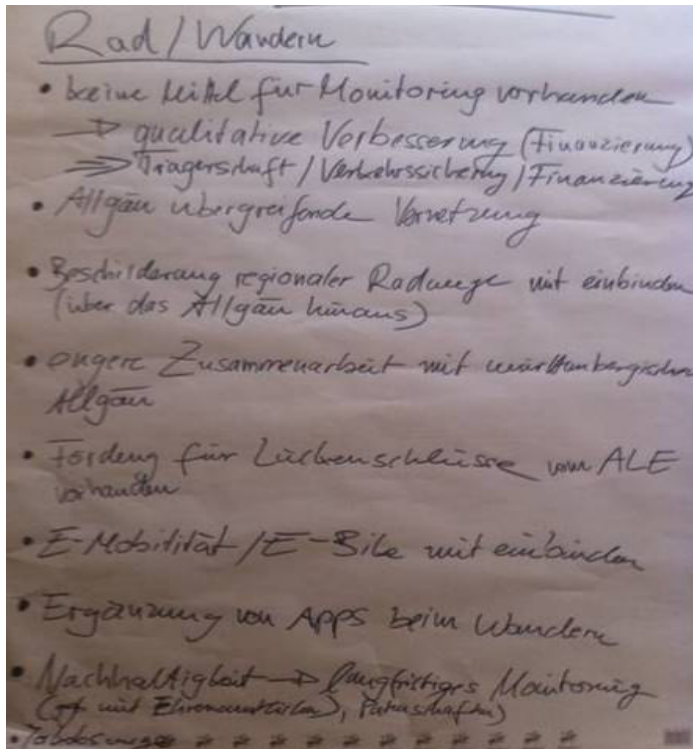 Rad/Wandern
• keine Mittel für Monitoring vorhanden
→ qualitative Verbesserung (Finanzierung)
⇒ Trägerschaft/Verkehrssicherung/Finanzierung
• Allgäu übergreifende Vernetzung
• Beschilderung regionaler Radwege mit einbinden
(über das Allgäu hinaus)
• engere Zusammenarbeit mit württembergischen
Allgäu
• Förderung für Lückenschlüsse vom ALE
vorhanden
• E-Mobilität/E-Bike mit einbinden
• Ergänzung von Apps beim Wandern
• Nachhaltigkeit → langfristiges Monitoring
mit Ehrenamtlichen), Patenschaften